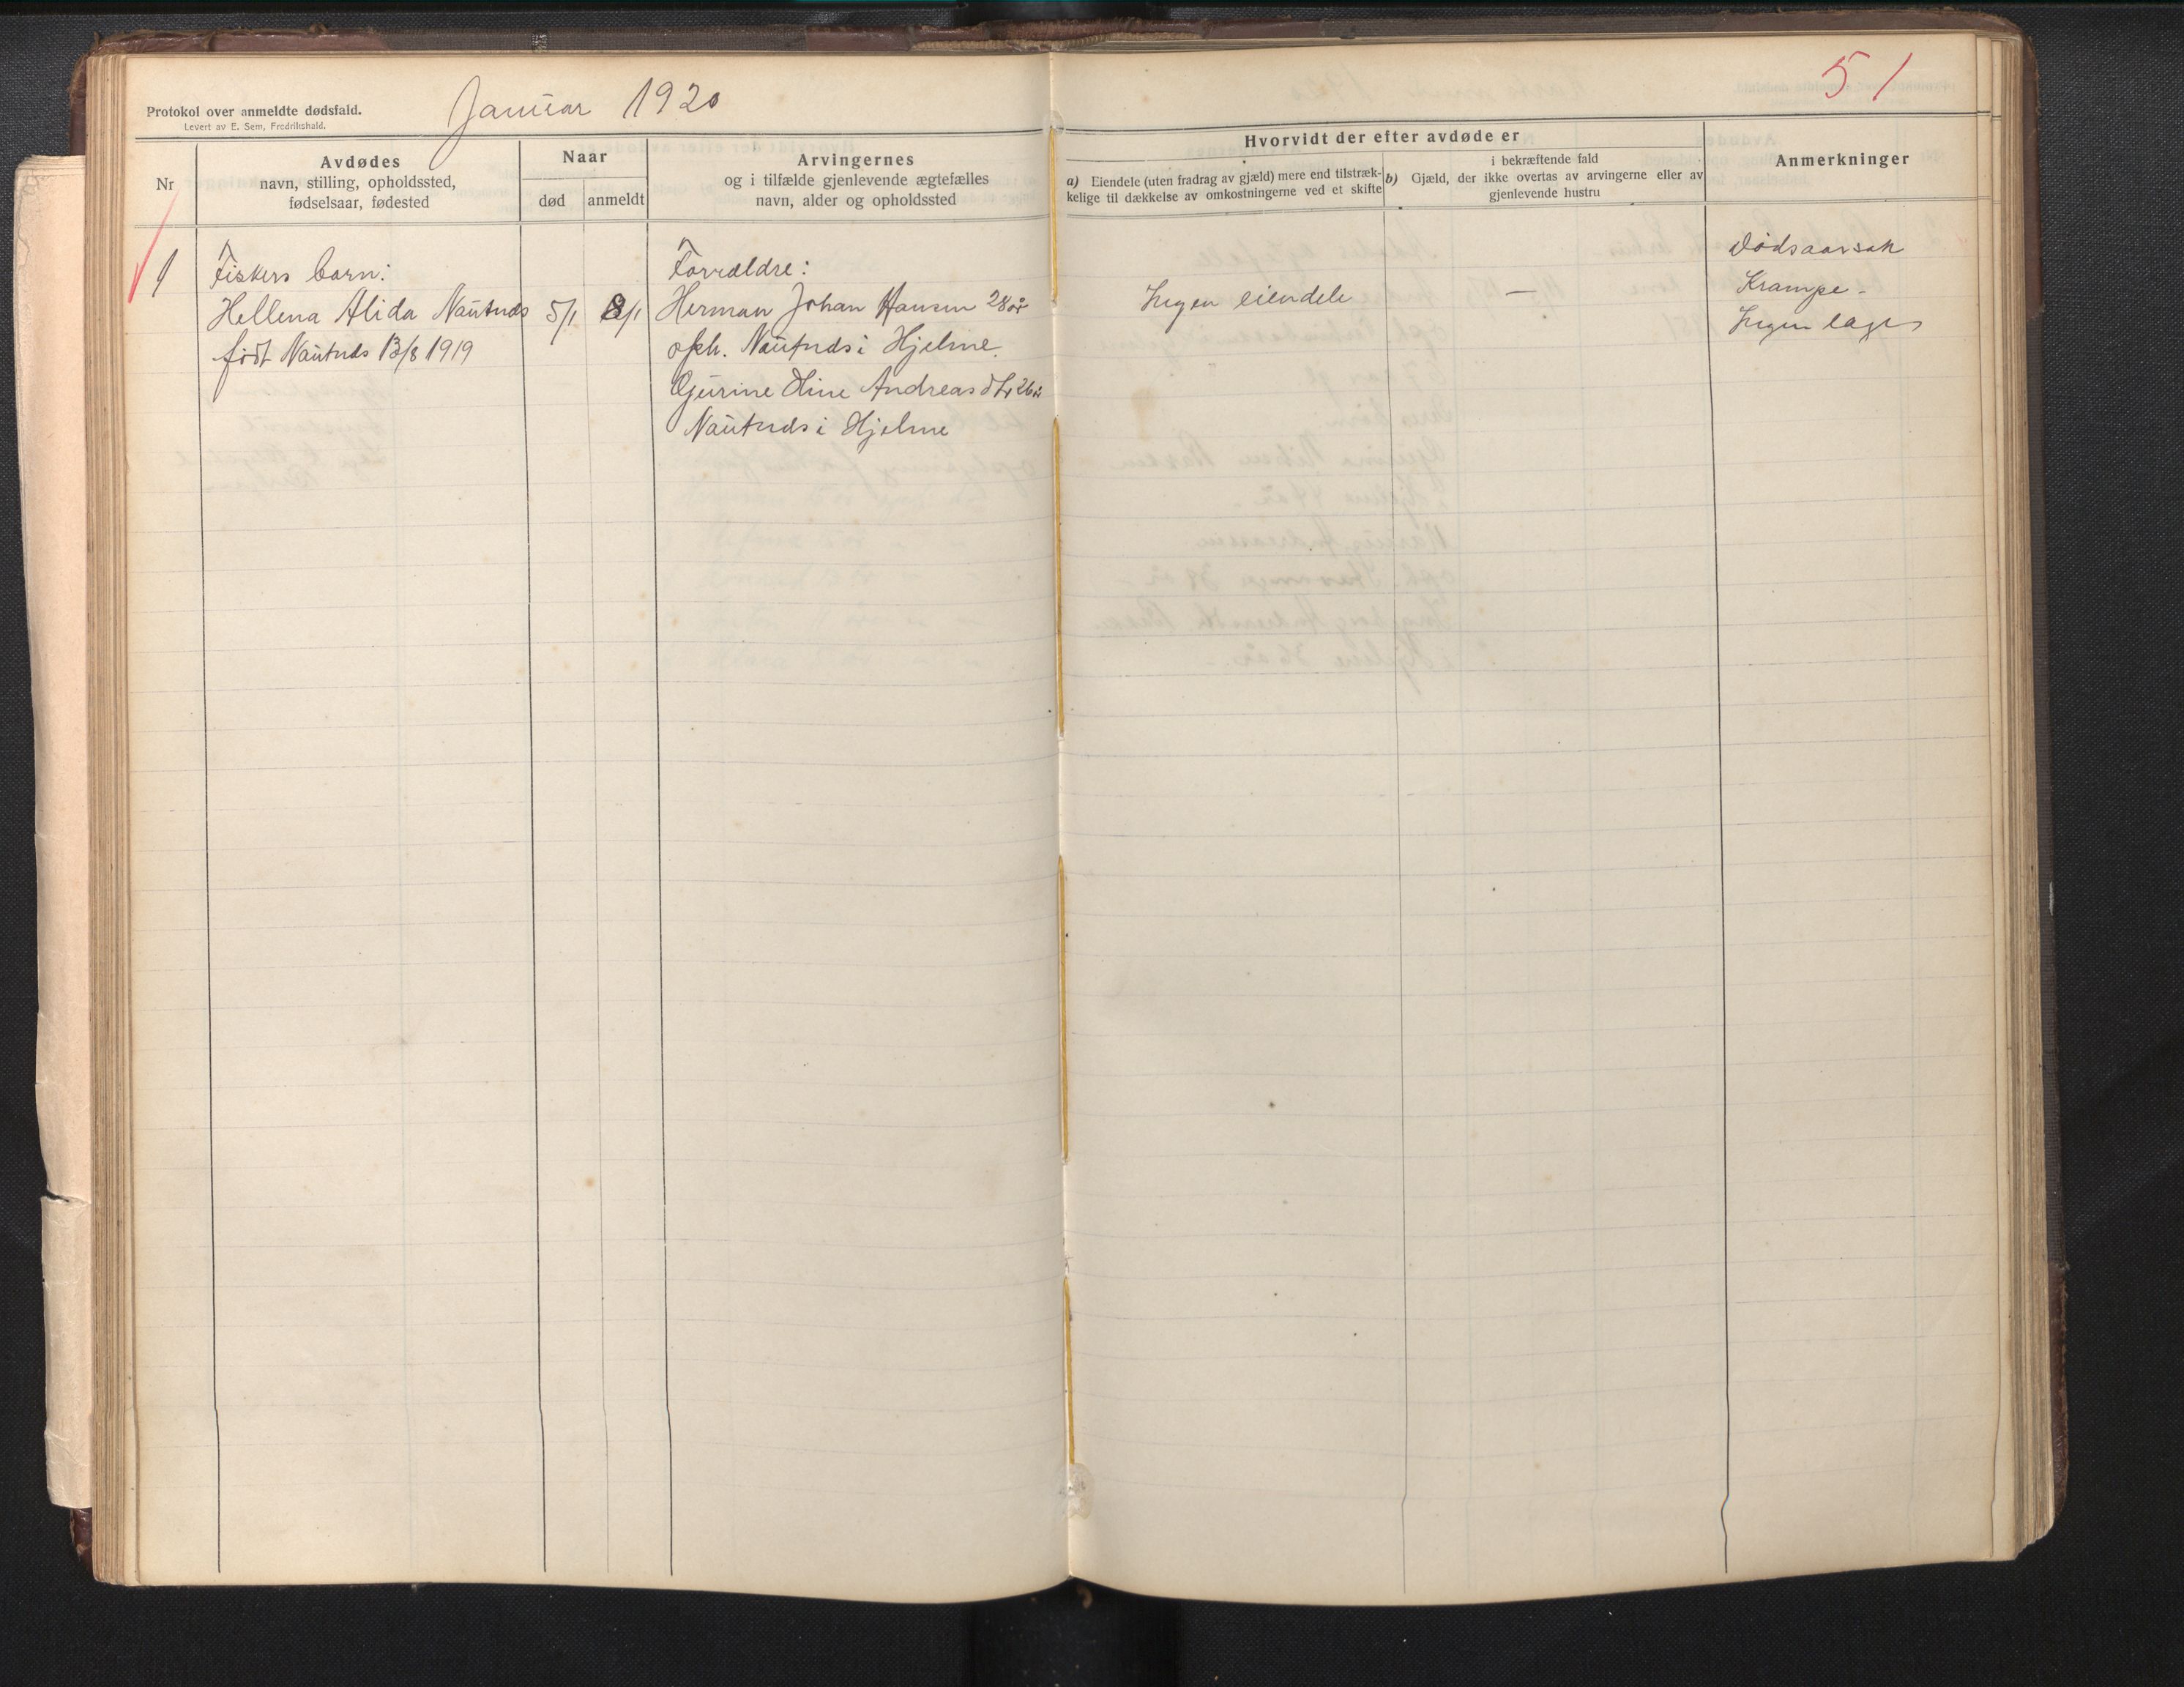 Januar 1920
51
Protokol over anmeldte dødsfald.
Levert av E. Sem, Fredrikshald.
Nr
Avdødes
navn, stilling, opholdssted,
fødselsaar, fødested
Naar
død
anmeldt
Arvingernes
og i tilfælde gjenlevende ægtefælles
navn, alder og opholdssted
Hvorvidt der efter avdøde er
a) Eiendele (uten fradrag av gjæld) mere end tilstræk-
kelige til dækkelse av omkostningerne ved et skifte
i bekræftende fald
b) Gjæld, der ikke overtas av arvingerne eller av
gjenlevende hustru
Anmerkninger
1
Fiskers barn:
Hellena Alida Nautnds
født Nautnds 13/8 1919
5/1
8/1
Forældre:
Herman Johan Hansen 28 år
oph. Nautnds i Hjelme.
Gjurine Oline Andreasdtr 26 år
Nautnds i Hjelme
Ingen eiendele
—
Dødsaarsak
Krampe -
Ingen læge